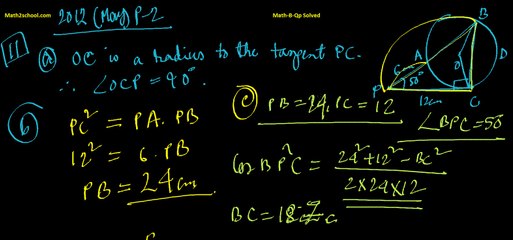 Math2school.com
Math-B-Qp Solved
2012 (May) P-2
11 (a) OC is a radius to the tangent PC.
∴ ∠OCP = 90°.
(b) PC² = PA. PB
12² = 6. PB
PB = 24 cm.
(c) PB = 24, PC = 12
∠BPC = 50
Cos BPC = 24² + 12² - BC²
2 × 24 × 12
BC = 18.7
B
A
D
6
50°
O
P
12cm
C